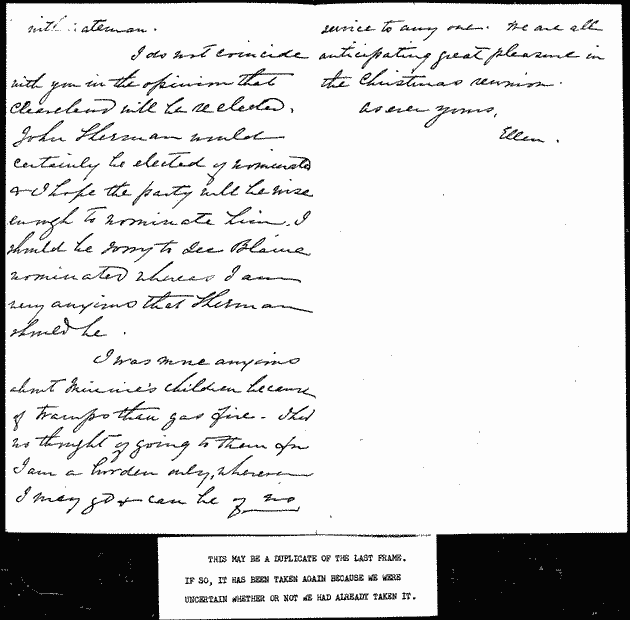 with
I do not coincide
with you in the opinion that
Cleaveland will be re elected.
John Sherman would
certainly be elected if nominated
& I hope the party will be wise
enough to nominate him. I
should be sorry to see Blaine
nominated whereas I am
very anxious that Sherman
should be.
I was more anxious
about Minnie's children because
of tramps than gas fire - I had
no thought of going to them for
I am a burden only, wherever
I may go & can be of no
service to any one. We are all
anticipating great pleasure in
the Christmas reunion.
As ever yours,
Ellen.
THIS MAY BE A DUPLICATE OF THE LAST FRAME.
IF SO, IT HAS BEEN TAKEN AGAIN BECAUSE WE WERE
UNCERTAIN WHETHER OR NOT WE HAD ALREADY TAKEN IT.